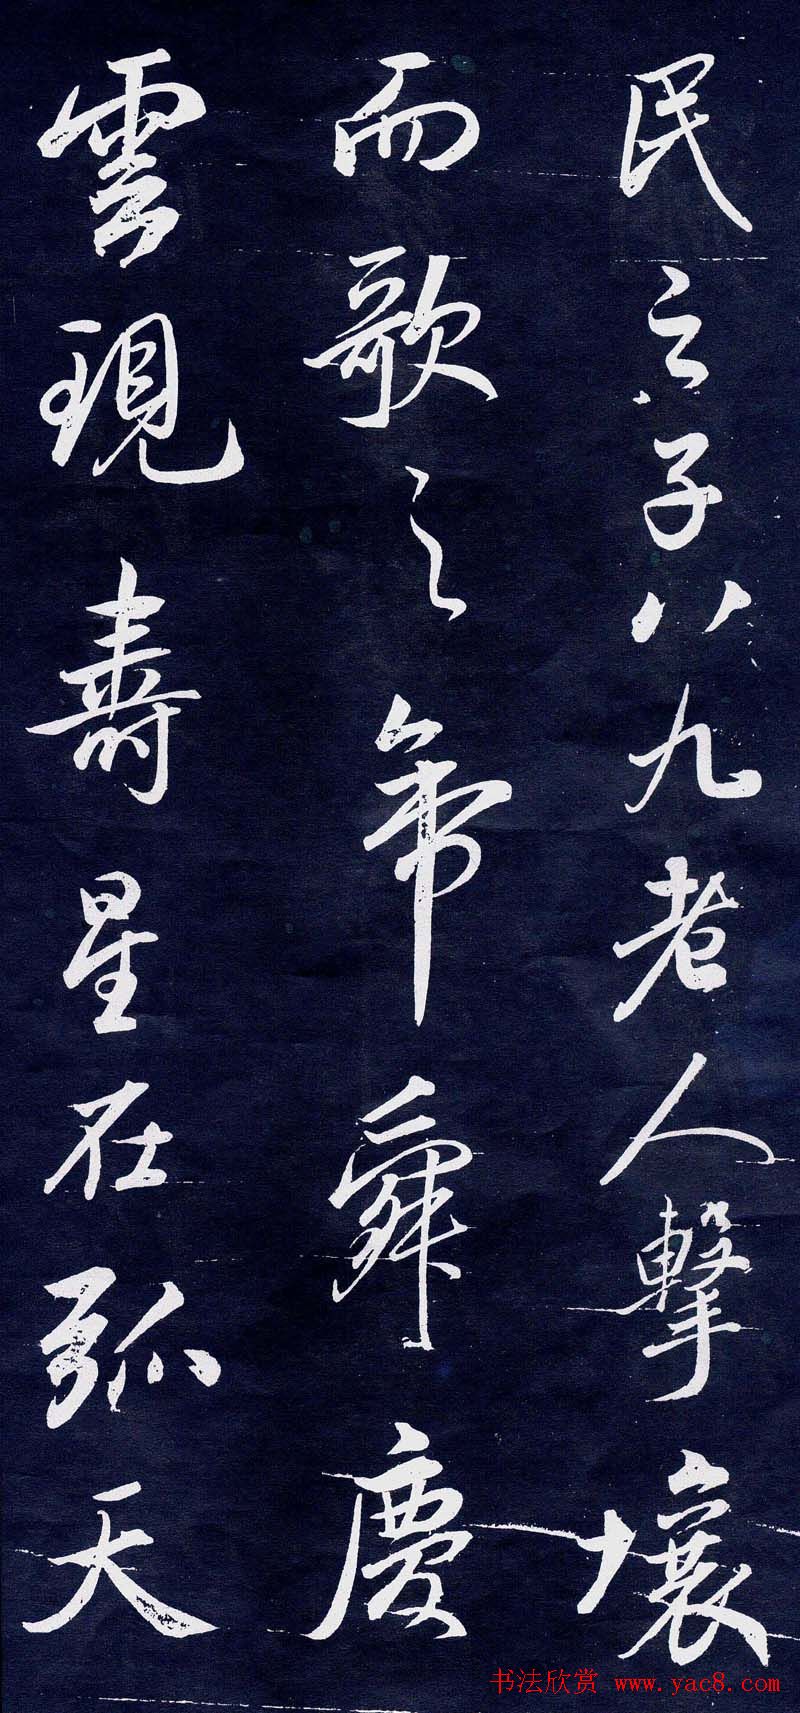 民之子八九老人擊壤
而歌之帝舜慶
雲現壽星在弧天
书法欣赏 www.yac8.com